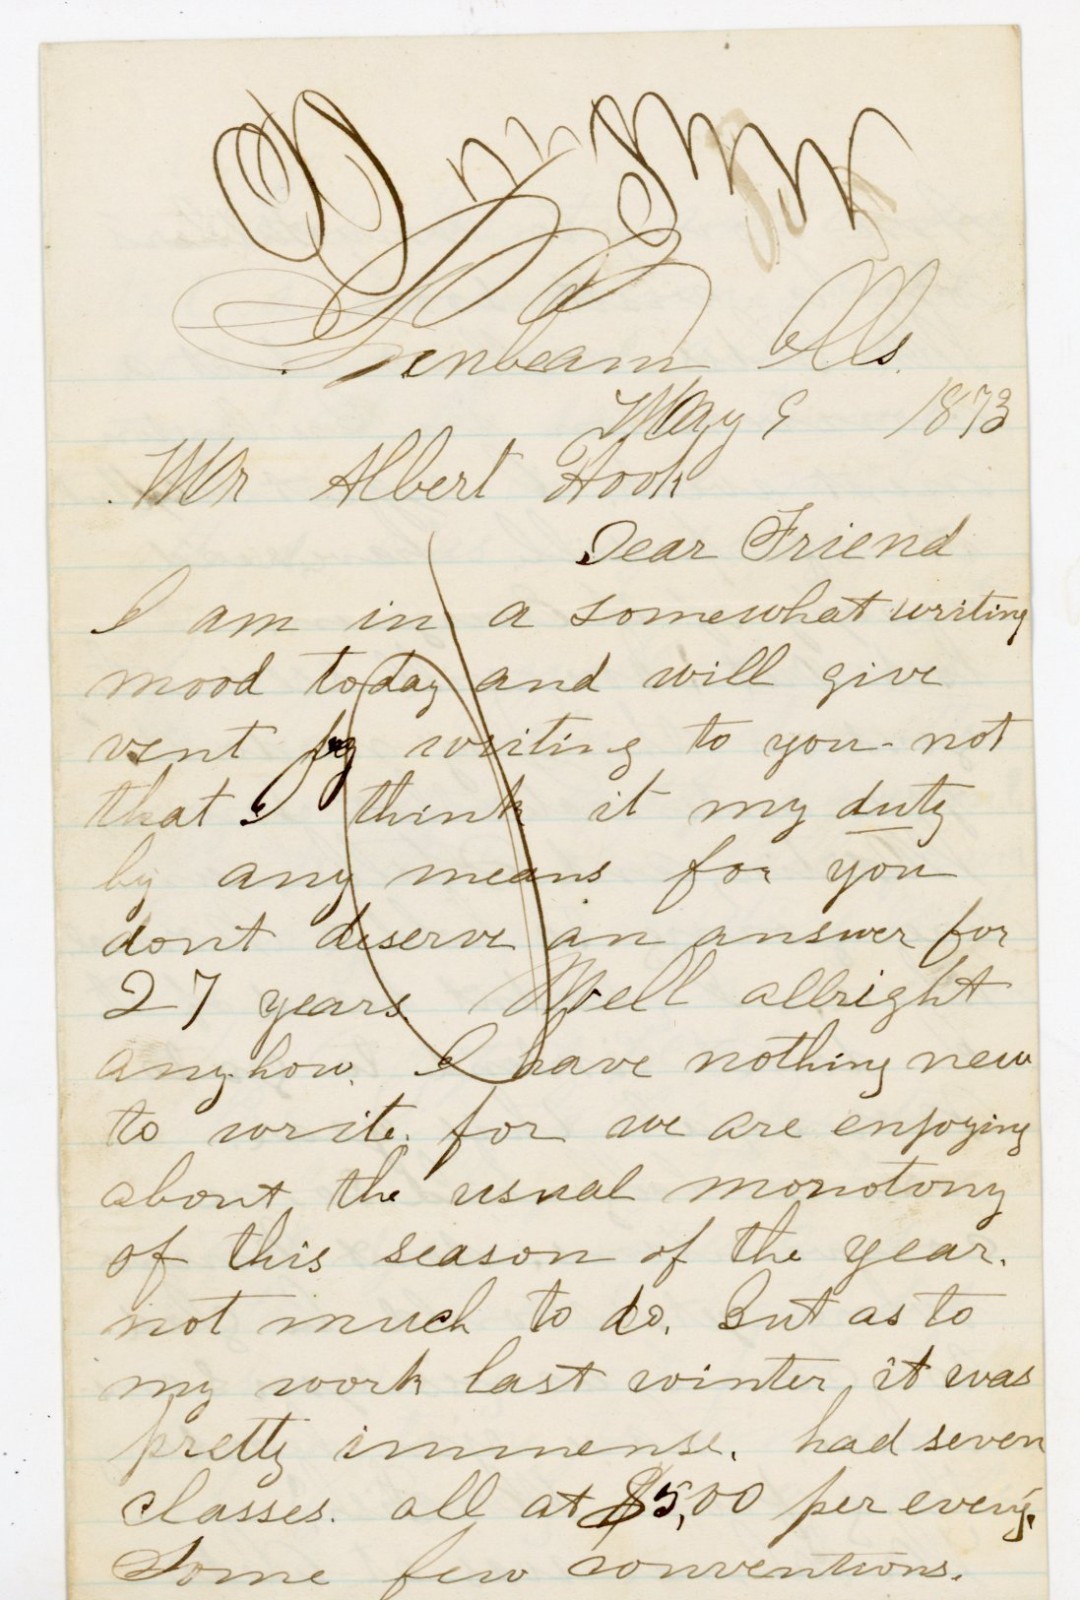 Sunbeam Ills.
May 9 1873
Mr Albert Hook
Dear Friend
I am in a somewhat writing
mood today and will give
vent by writing to you - not
that I think it my duty
by any means for you
dont deserve an answer for
27 years. Well allright
anyhow. I have nothing new
to write. for we are enjoying
about the usual monotony
of this season of the year.
not much to do. But as to
my work last winter, it was
pretty immense. had seven
classes. all at $5,00 per eveng.
Some few conventions.